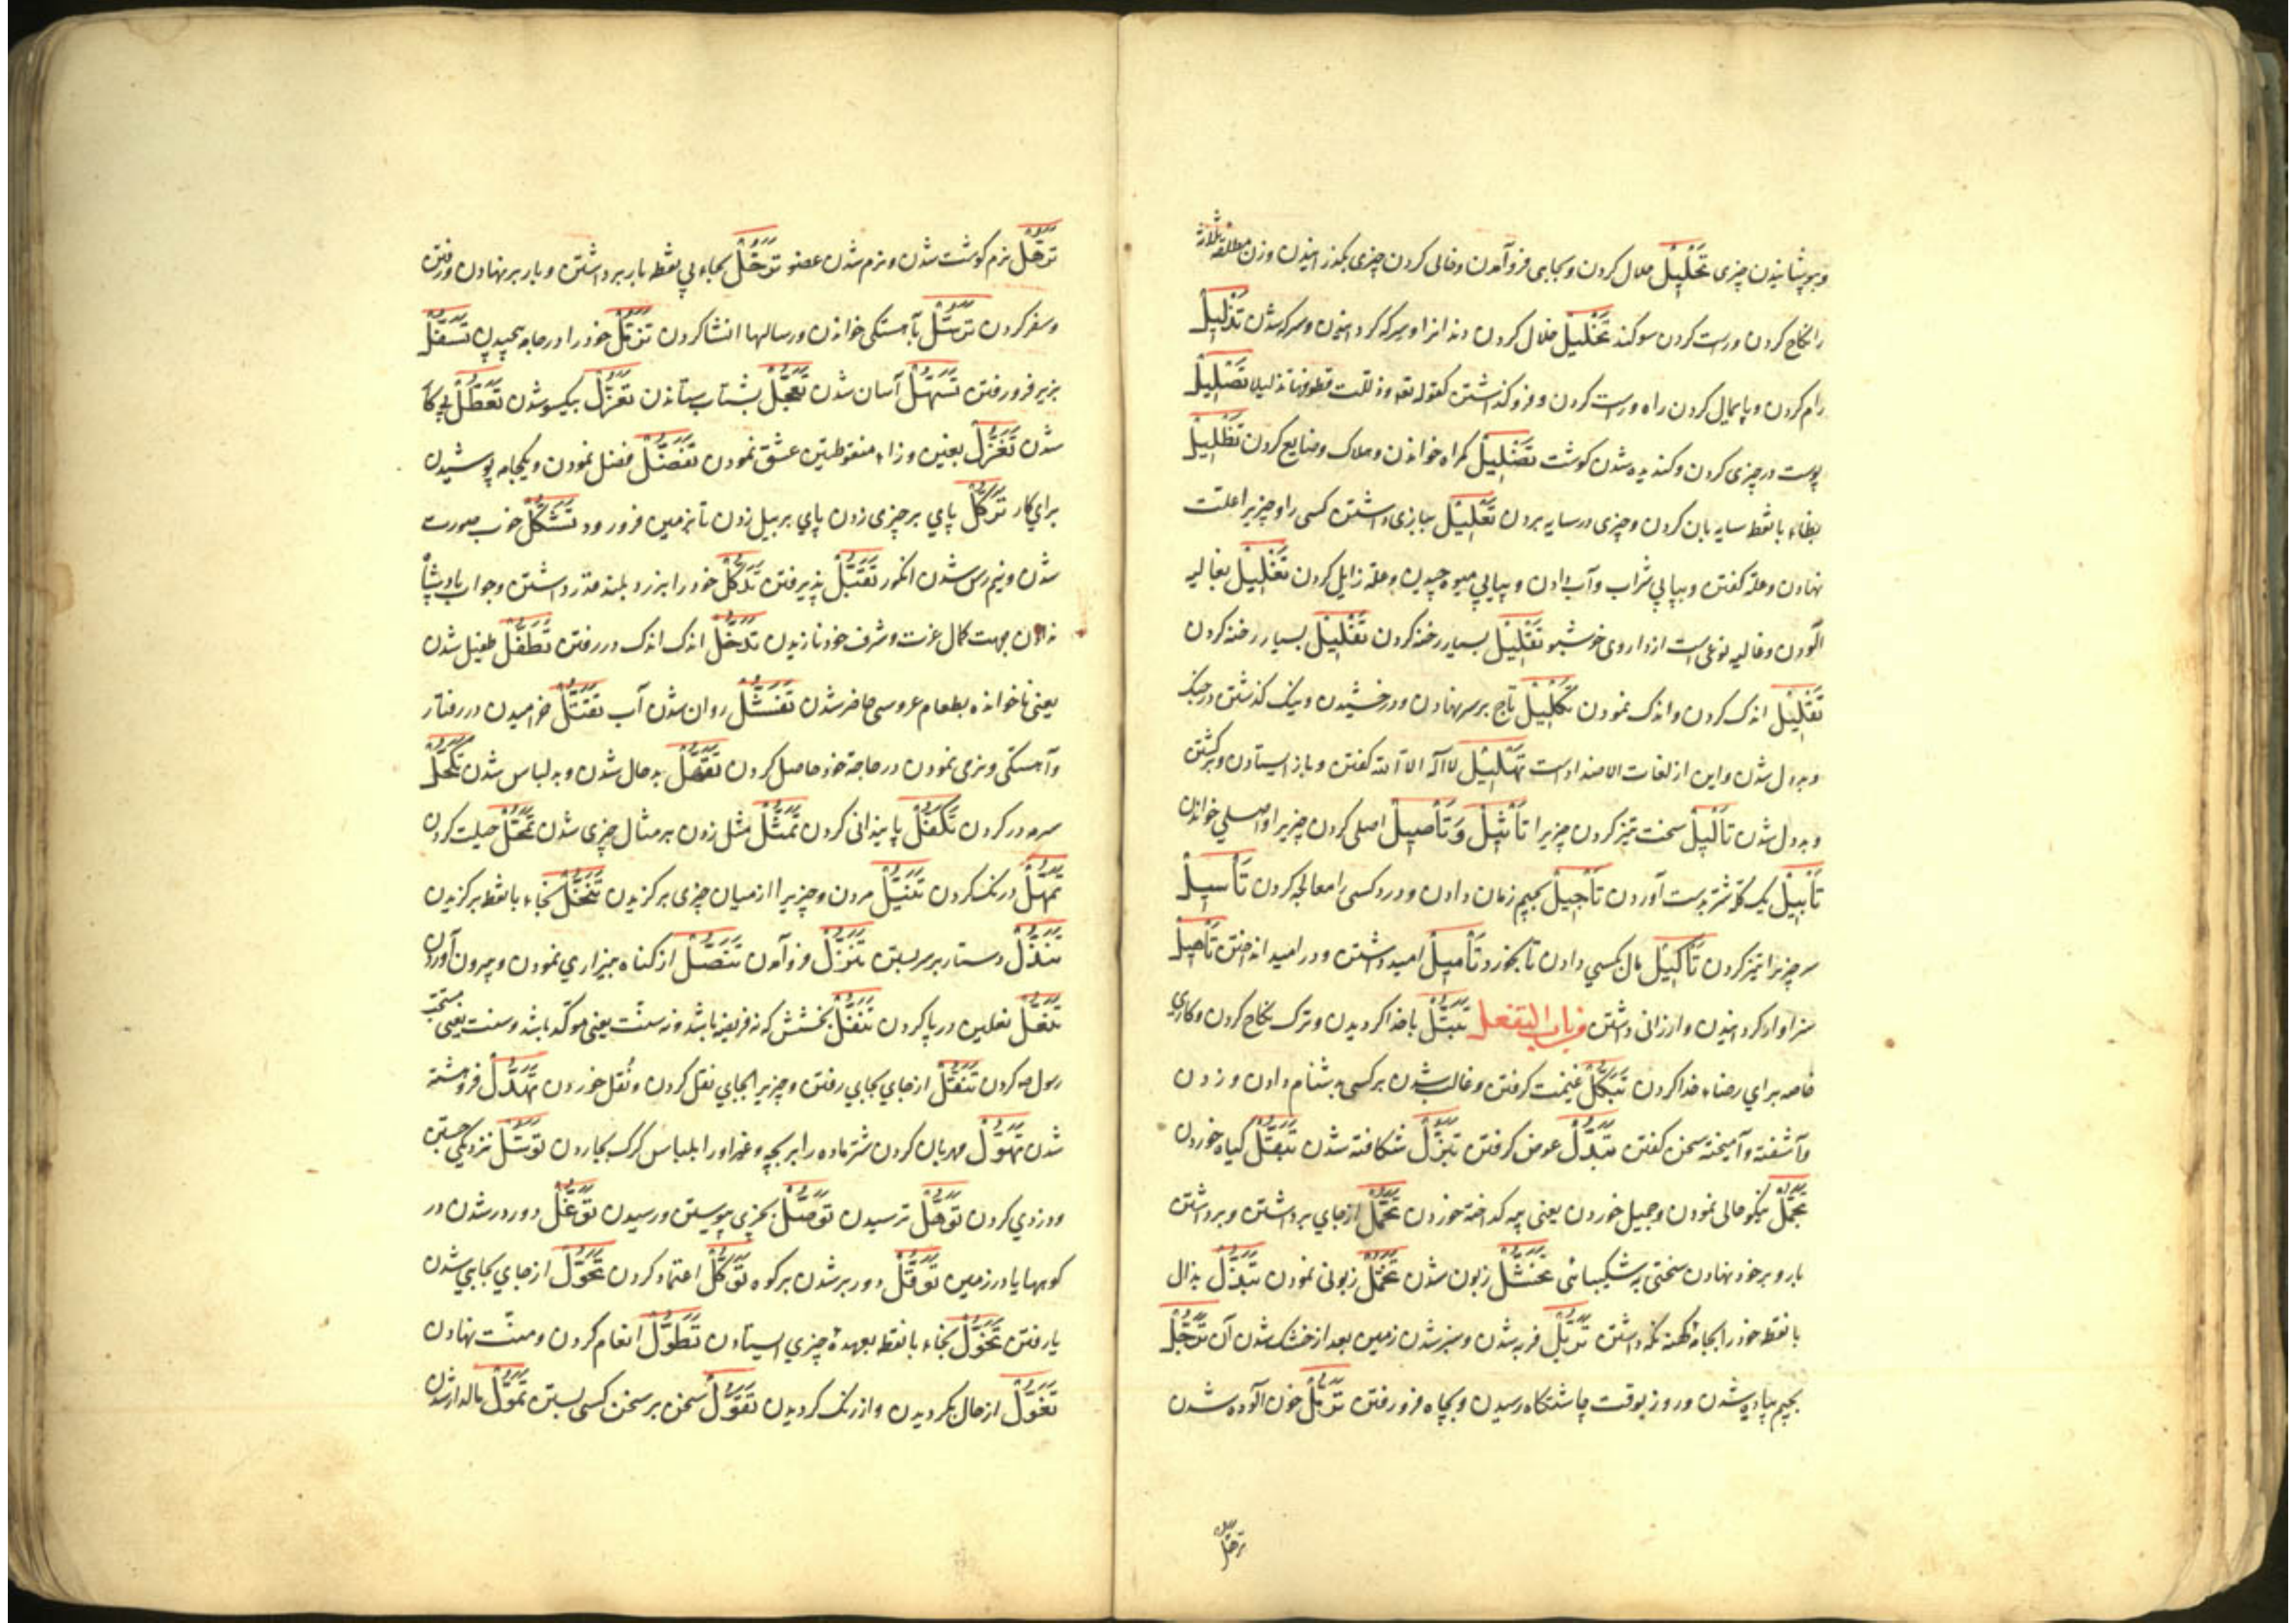 و بپوشانیدن چیزی تَحْلِیْلْ حلال کردن و بجایی فرو آمدن و خالی کردن چیزی بگذرانیدن و زن مطلقه ثلاثه
را نکاح کردن و راست کردن سوکند تَخْلِیْلْ خلال کردن دندانرا و سرکه کردانیدن و سرکه شدن تَذْلِیْلْ
رام کردن و پایمال کردن راه و راست کردن و فرو کذاشتن کقوله تعه وذللت قطوفها تذلیلا
پوست در چیزی کردن و کندیده شدن کوشت تَضْلِیْلْ کمراه خواندن و هلاک و ضایع کردن تَظْلِیْلْ
بظاء با نقط سایه بان کردن و چیزی در سایه بردن تَعْلِیْلْ ببازی داشتن کسی را و چیزیرا علت
نهادن و علة کفتن و بیاپی شراب و آب دادن و بیاپی میوه چیدن و علة زایل کردن تَغْلِیْلْ بغالیه
آلودن و غالیه نوعی است از داروی خوشبو تَفْلِیْلْ بسیار رخنه کردن تَفْلِیْلْ بسیار رخنه کردن
تَقْلِیْلْ اندک کردن و اندک نمودن تَکْلِیْلْ تاج بر سر نهادن و درخشیدن و نیک کذشتن در جنک
و بددل شدن و این از لغات الاضداد است تَهْلِیْلْ لا اله الا الله کفتن و باز ایستادن و برکشتن
و بددل شدن تَأْلِیْلْ سخت تیز کردن چیزیرا تَأْثِیْلْ وَتَأْصِیْلْ اصلی کردن چیزیرا و اصلی خواندن
تَأْبِیْلْ یک کلّه شتر بدست آوردن تَأْجِیْلْ بجیم زمان دادن و درد کسی را معالجه کردن تَأْسِیْلْ
سر چیزیرا تیز کردن تَأْکِیْلْ مال بکسی دادن تا بخورد تَأْمِیْلْ امید داشتن و در امید انداختن
سزاوار کردانیدن و ارزانی داشتن من باب التفعل تَبَتُّلْ با خدا کردیدن و ترک نکاح کردن و کاری
خاصه برای رضاء خدا کردن تَبَکُّلْ غنیمت کرفتن و غالب شدن بر کسی بدشنام دادن و زدن
و آشفته و آمیخته سخن کفتن تَبَدُّلْ عوض کرفتن تَبَزُّلْ شکافته شدن تَبَقُّلْ کیاه خوردن
تَجَمُّلْ نیکو حالی نمودن و جمیل خوردن یعنی پیه کداخته خوردن تَحَمُّلْ از جای برداشتن و برداشتن
بار و بر خود نهادن سختی به شکیبائی زبون شدن زبونی نمودن تَبَذُّلْ بذال
با نقط خود را بجامهٔ کهنه نکه داشتن تَرَبُّلْ فربه شدن و سبز شدن زمین بعد از خشک شدن آن تَرَجُّلْ
بجیم پیاده شدن و روز بوقت چاشتکاه رسیدن و بچاه فرو رفتن خون آلوده شدن
ترهّل
تَرَهُّلْ نرم کوشت شدن و نرم شدن عضو تَرَحُّلْ بحاء بی نقطه بار برداشتن و بار بر نهادن و رفتن
و سفر کردن تَرَسُّلْ بآهستکی خواندن و رسالها انشا کردن تَزَمُّلْ خود را در جامه پیچیدن تَسَفُّلْ
بزیر فرو رفتن تَسَهُّلْ آسان شدن تَعَجُّلْ بشتاب ستاندن تَعَزُّلْ بیکسو شدن تَعَطُّلْ بی کار
شدن تَغَزُّلْ بغین و زاء منقوطتین عشق نمودن تَفَضُّلْ فضل نمودن و یکجامه پوشیدن
برای کار تَرَکُّلْ پای بر چیزی زدن پای بر بیل زدن تا بزمین فرو رود تَشَکُّلْ خوب صورت
شدن و نیم رس شدن انکور تَقَبُّلْ پذیرفتن تَدَکُّلْ خود را بزرد بلند قدر داشتن و جواب پادشاه
نادادن جهت کمال عزت و شرف خود نازیدن تَدَخُّلْ اندک اندک در رفتن تَطَفُّلْ طفیل شدن
یعنی ناخوانده بطعام عروسی حاضر شدن تَفَشُّلْ روان شدن آب تَقَتُّلْ خرامیدن در رفتار
و آهستکی و نرمی نمودن در حاجة خود حاصل کردن بد حال شدن و بد لباس شدن تَکَحُّلْ
سرمه در کردن تَکَفُّلْ پایندانی کردن تَمَثُّلْ مثل زدن بر مثال چیزی شدن تَمَحُّلْ حیلت کردن
تَمَهُّلْ درنک کردن مردن و چیزیرا از میان چیزی برکزیدن تَنَخُّلْ بخاء با نقط برکزیدن
تَنَدُّلْ دستار بر سر بستن تَنَزُّلْ فرو آمدن تَنَصُّلْ از کناه بیزاری نمودن و بیرون آوردن
تَنَعُّلْ نعلین در پا کردن تَنَفُّلْ بخشش که نه فریضه باشد و نه سنّت یعنی موکّد باشد و سنت یعنی مستحب
رسول صه کردن تَنَقُّلْ از جای بجایی رفتن و چیزیرا بجای نقل کردن و نُقل خوردن تَهَدُّلْ فروهشته
شدن تَهَوُّلْ مهربان کردن شتر ماده را بر بچه و غیر او را بلباس کرک بجا ردن تَوَسُّلْ نزدیکی جستن
و دزدی کردن تَوَهُّلْ ترسیدن تَوَصُّلْ بچیزی پیوستن و رسیدن تَوَغُّلْ دور در شدن در
کوهها یا در زمین تَوَقُّلْ دور بر شدن بر کوه تَوَکُّلْ اعتماد کردن تَحَوُّلْ از جای بجایی شدن
یا رفتن تَخَوُّلْ بخاء با نقط بعهدهٔ چیزی ایستادن تَطَوُّلْ انعام کردن و منّت نهادن
تَغَوُّلْ از حال بکردیدن و از رنک کردیدن تَقَوُّلْ سخن بر سخن کسی بستن تَمَوُّلْ مالدار شدن